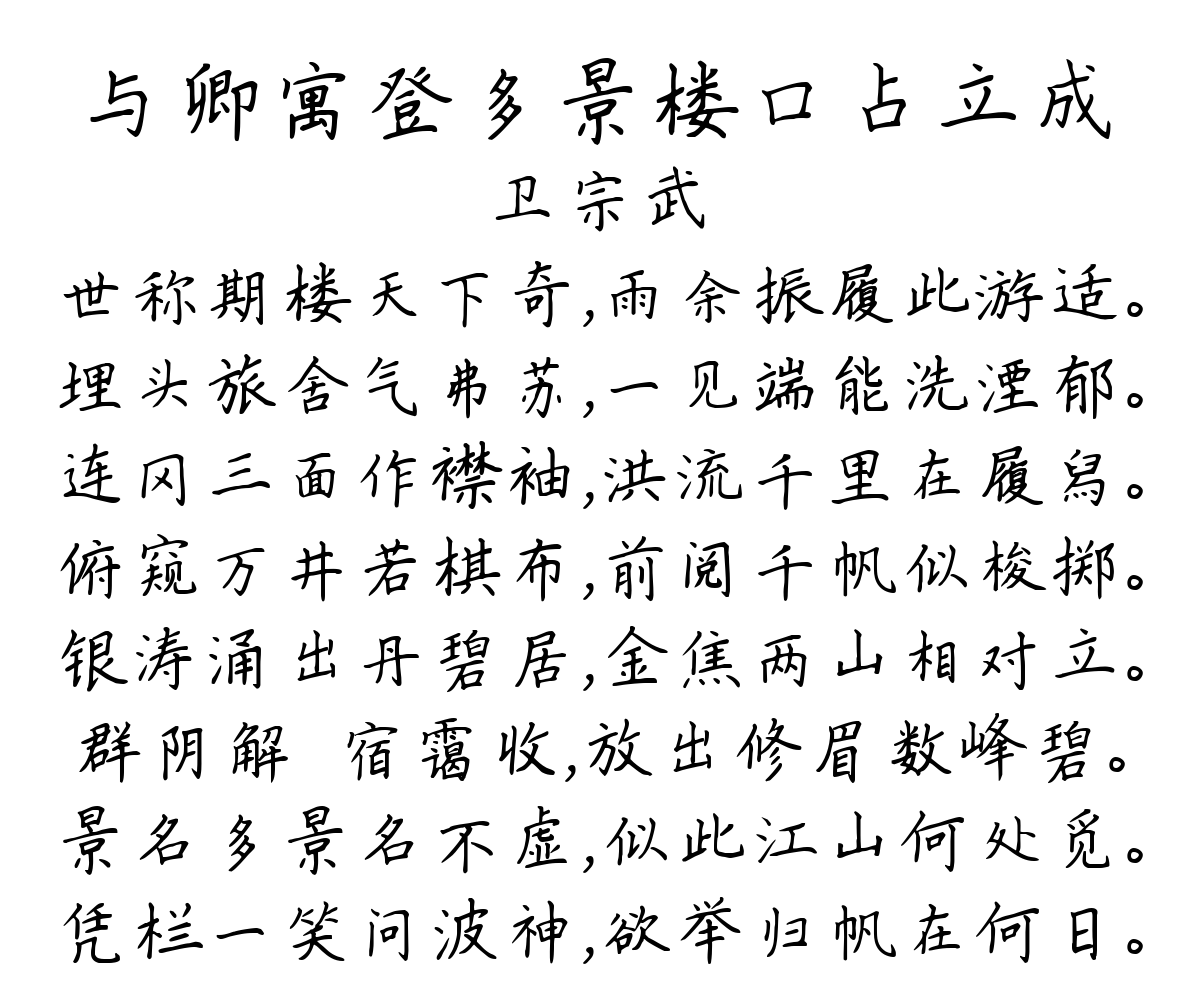 与卿寓登多景楼口占立成
卫宗武
世称期楼天下奇,雨余振履此游适。
埋头旅舍气弗苏,一见端能洗湮郁。
连冈三面作襟袖,洪流千里在履舄。
俯窥万井若棋布,前阅千帆似梭掷。
银涛涌出丹碧居,金焦两山相对立。
群阴解 宿霭收,放出修眉数峰碧。
景名多景名不虚,似此江山何处觅。
凭栏一笑问波神,欲举归帆在何日。